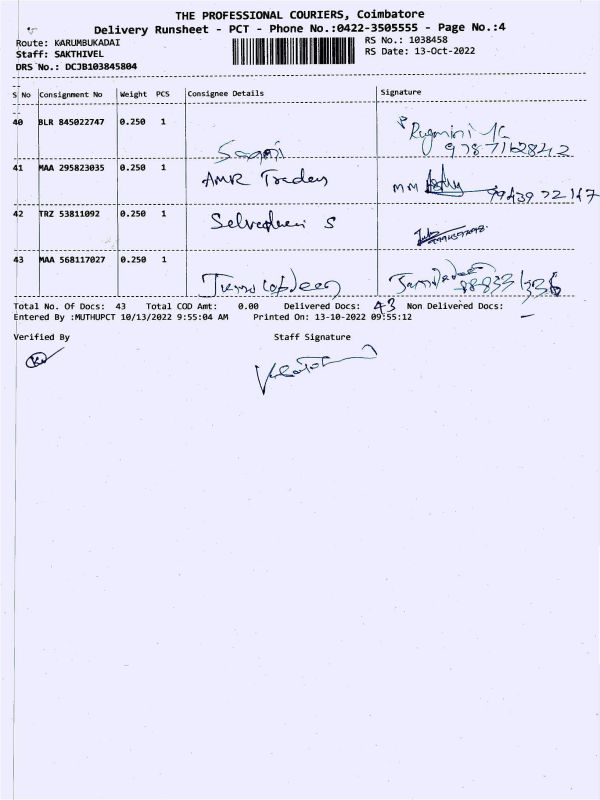 THE PROFESSIONAL COURIERS, Coimbatore
Delivery Runsheet - PCT - Phone No.:0422-3505555 - Page No.:4
Route: KARUMBUKADAI
RS No.: 1038458
Staff: SAKTHIVEL
RS Date: 13-Oct-2022
DRS No.: DCJB103845804
S No Consignment No Weight PCS Consignee Details Signature
40 BLR 845022747 0.250 1
9787162842
41 MAA 295823035 0.250 1 AMR Traders MM
99439 72147
42 TRZ 53811092 0.250 1 S
43 MAA 568117027 0.250 1
Total No. Of Docs: 43 Total COD Amt: 0.00 Delivered Docs: 43 Non Delivered Docs: —
Entered By :MUTHUPCT 10/13/2022 9:55:04 AM Printed On: 13-10-2022 09:55:12
Verified By Staff Signature